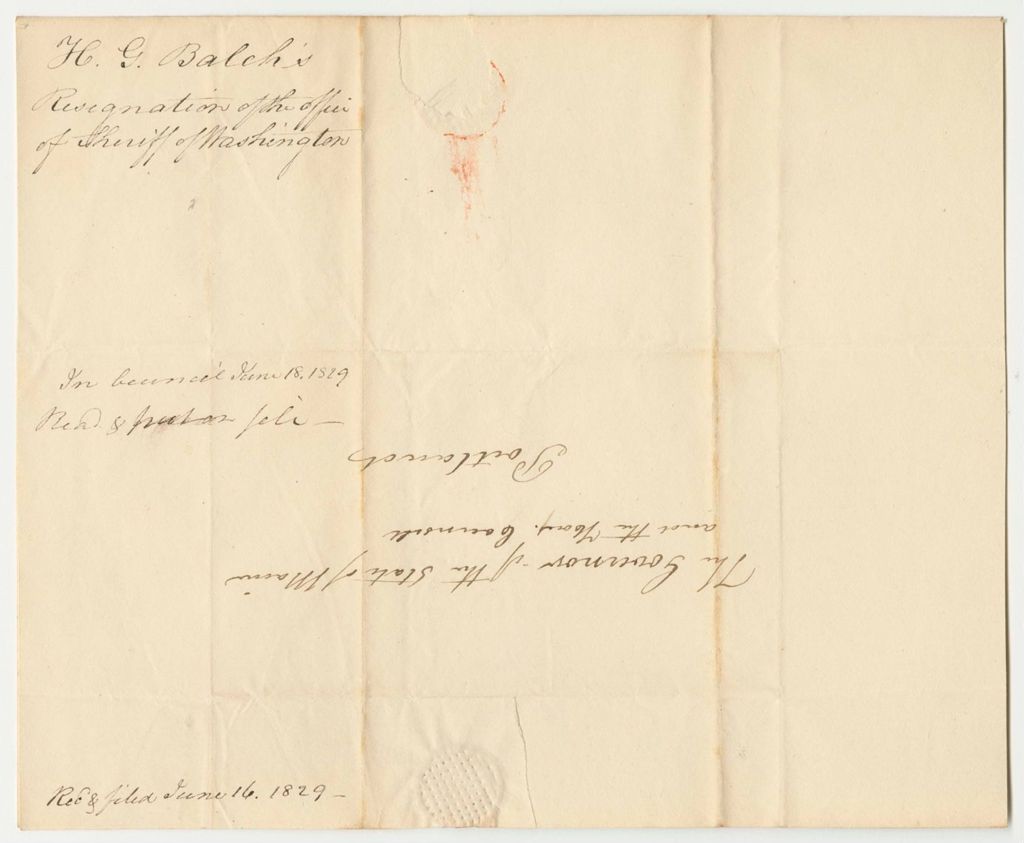 H. G. Balch's
Resignation of the office
of Sheriff of Washington
In Council June 18. 1829
Read & put on file —
The Governor of the State of Maine
and the Hon. Council
Portland
Recd & filed June 16. 1829 —